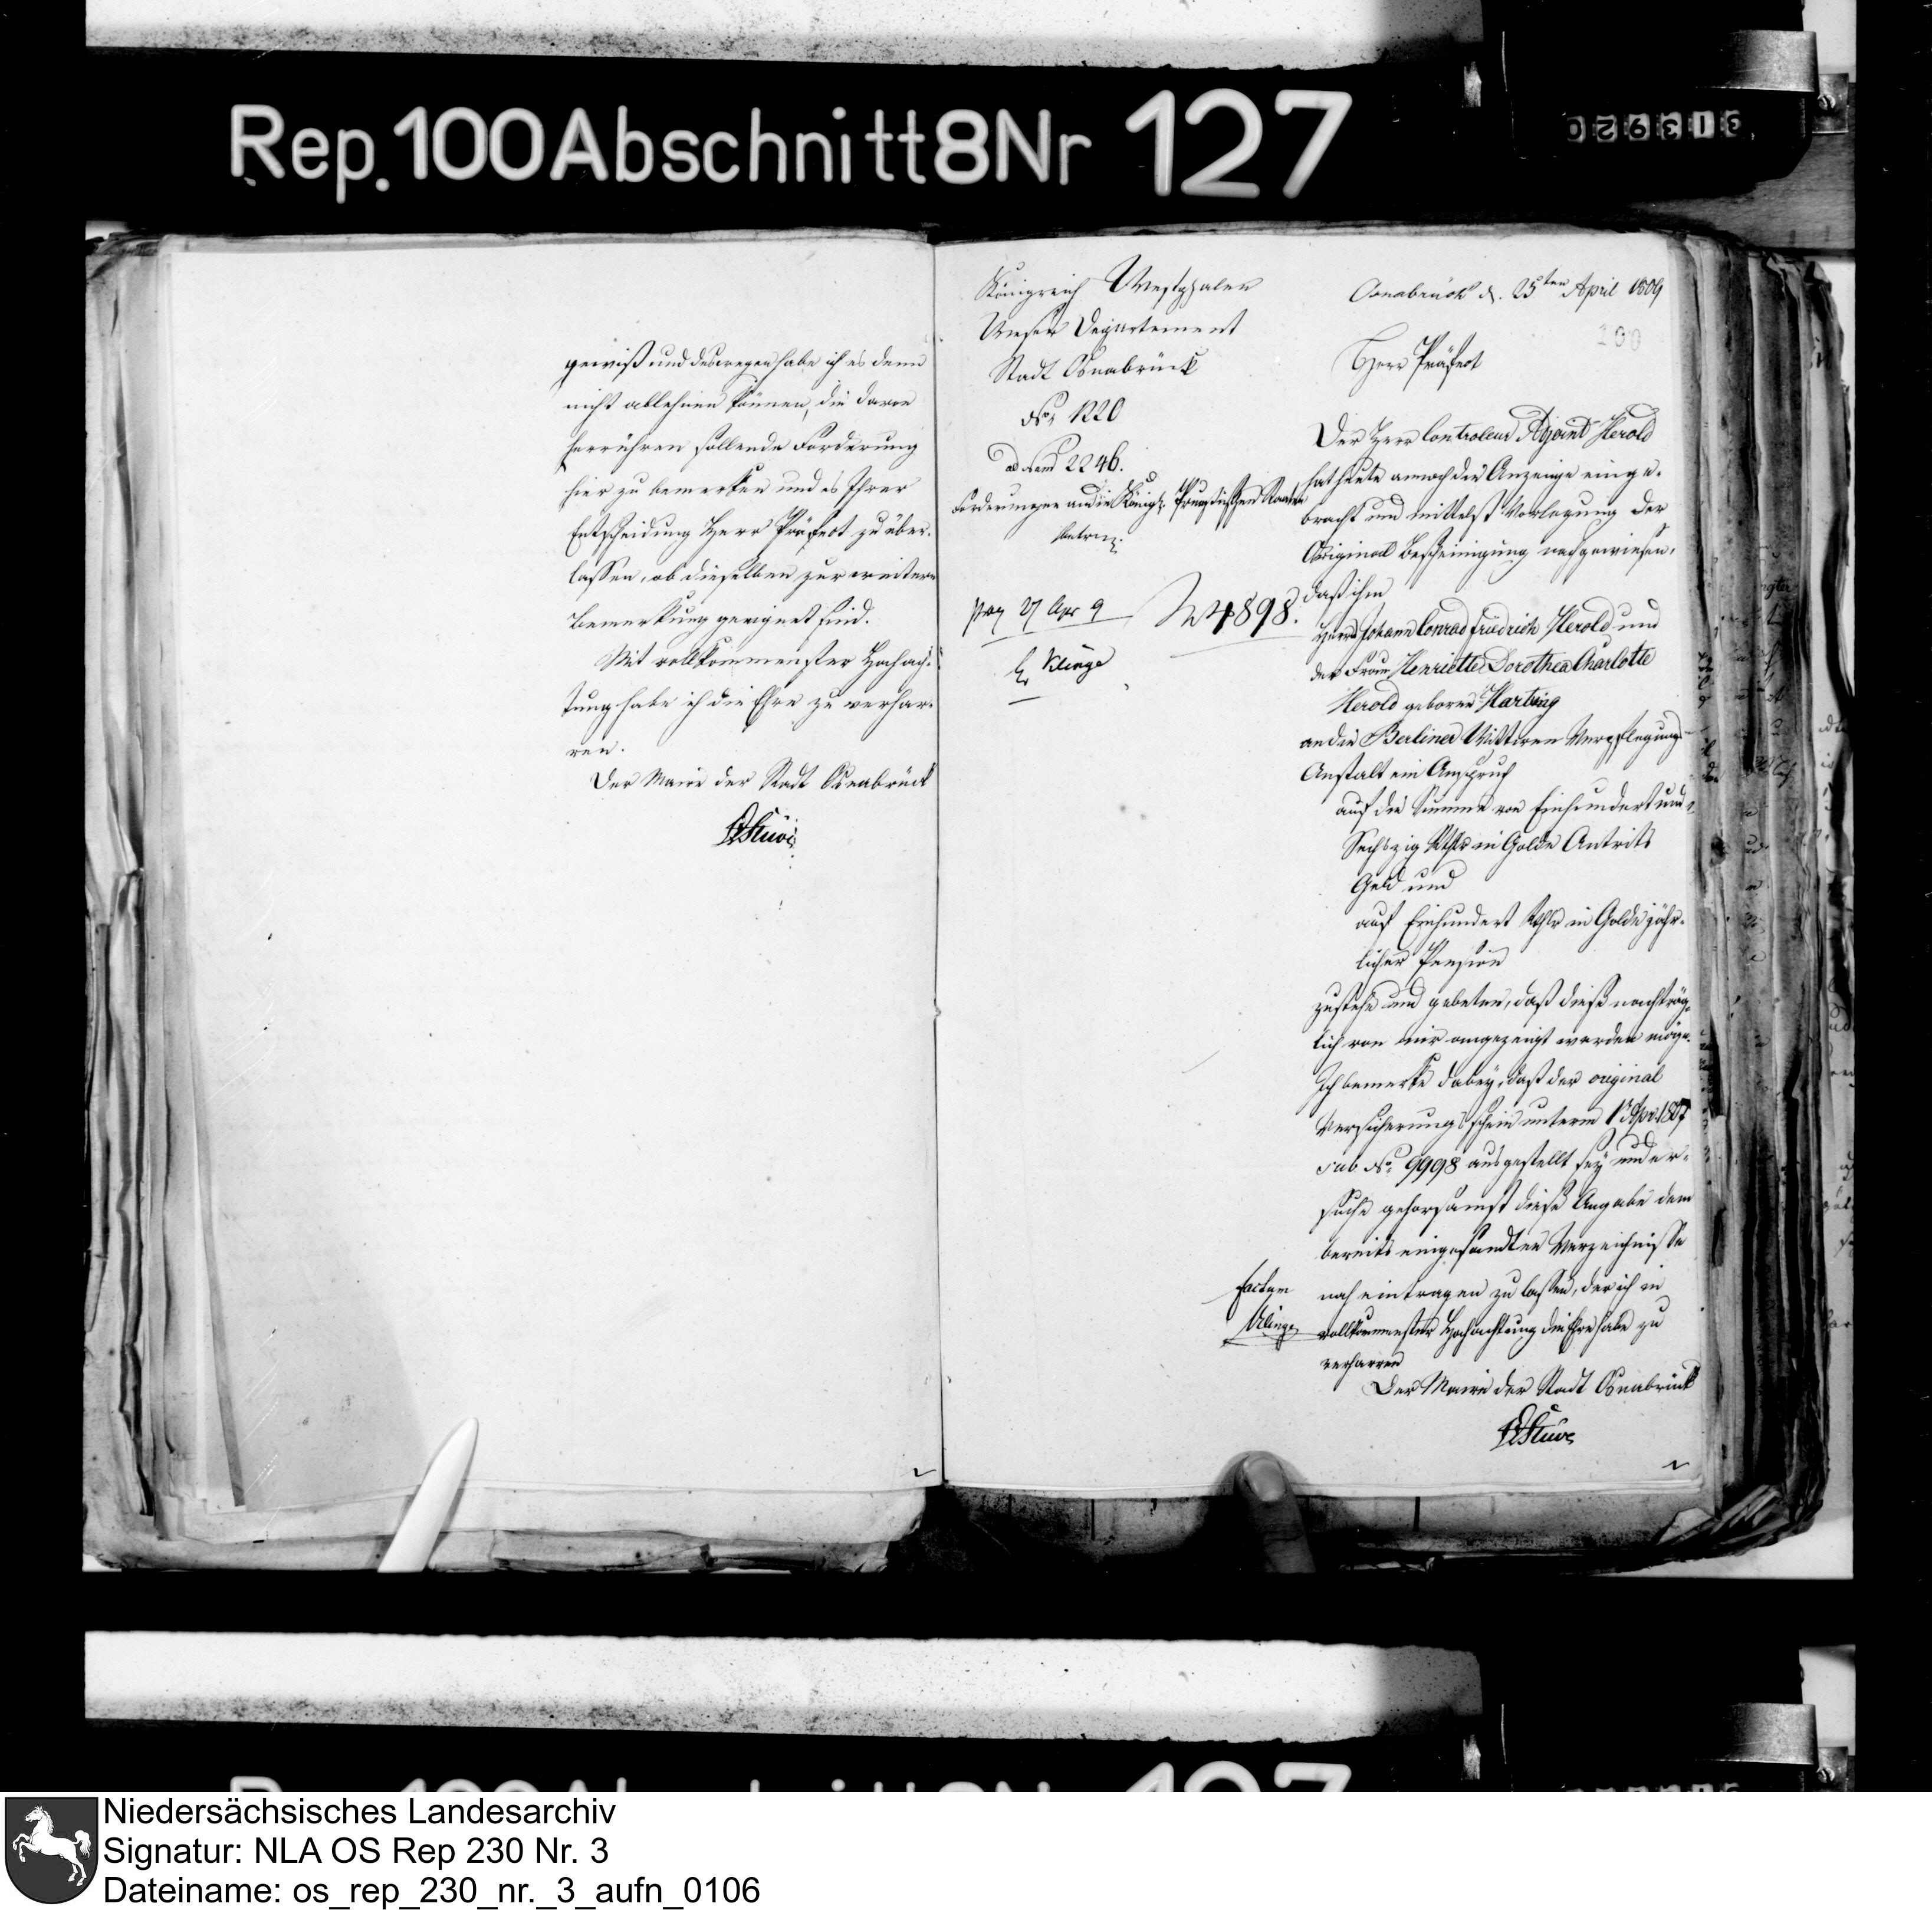 Rep. 100 Abschnitt 8 Nr 127
gewiß und deswegen habe ich es denn
nicht ablehnen können, die davon
herrühren sollende Forderung
hier zu bemerken und es Ihrer
Entscheidung Herr Präfect zu über-
lassen, ob dieselben zur weitern
Bemerkung geeignet sind.
Mit vollkommenster Hochach-
tung habe ich die Ehre zu verhar-
ren.
Der Maire der Stadt Osnabrück
Stüve
Königreich Westphalen
Weser Departement
Stadt Osnabrück
No. 1220
ad Num 2246.
Forderungen an die Königl. Preußischen Staaten
betr.
27 Apr 9
4898.
Klinge
Osnabrück d. 25ten April 1809
200
Herr Präfect
Der Herr Controleur Adjoint Herold
hat heute annoch die Anzeige einge-
bracht und mittelst Vorlegung der
Original Bescheinigung nachgewiesen,
daß ihm
Herrn Johann Conrad Friedrich Herold und
der Frau Henriette Dorothea Charlotte
Herold geboren Harting
an die Berliner Wittwen Verpflegungs-
Anstalt ein Anspruch
auf die Summe von Einhundert und
Sechszig Rthlr in Golde Antritts
Geld und
auf Einhundert Rthlr in Golde jähr-
licher Pension
zustehe und gebeten, daß dieß nachträg-
lich von mir angezeigt werden möge.
Ich bemerke dabey, daß der original
Versicherungsschein unterm 1 Apr. 1807
sub No. 9998 ausgestellt sey und er-
suche gehorsamst diese Angabe dem
bereits eingesandten Verzeichnisse
nach eintragen zu lassen, der ich in
vollkommenster Hochachtung die Ehre habe zu
verharren
factum
Klinge
Der Maire der Stadt Osnabrück
Stüve
Niedersächsisches Landesarchiv
Signatur: NLA OS Rep 230 Nr. 3
Dateiname: os_rep_230_nr._3_aufn_0106